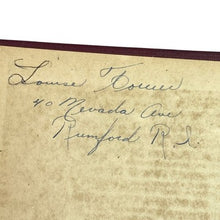 Louise Tower
40 Nevada Ave
Rumford R. I.